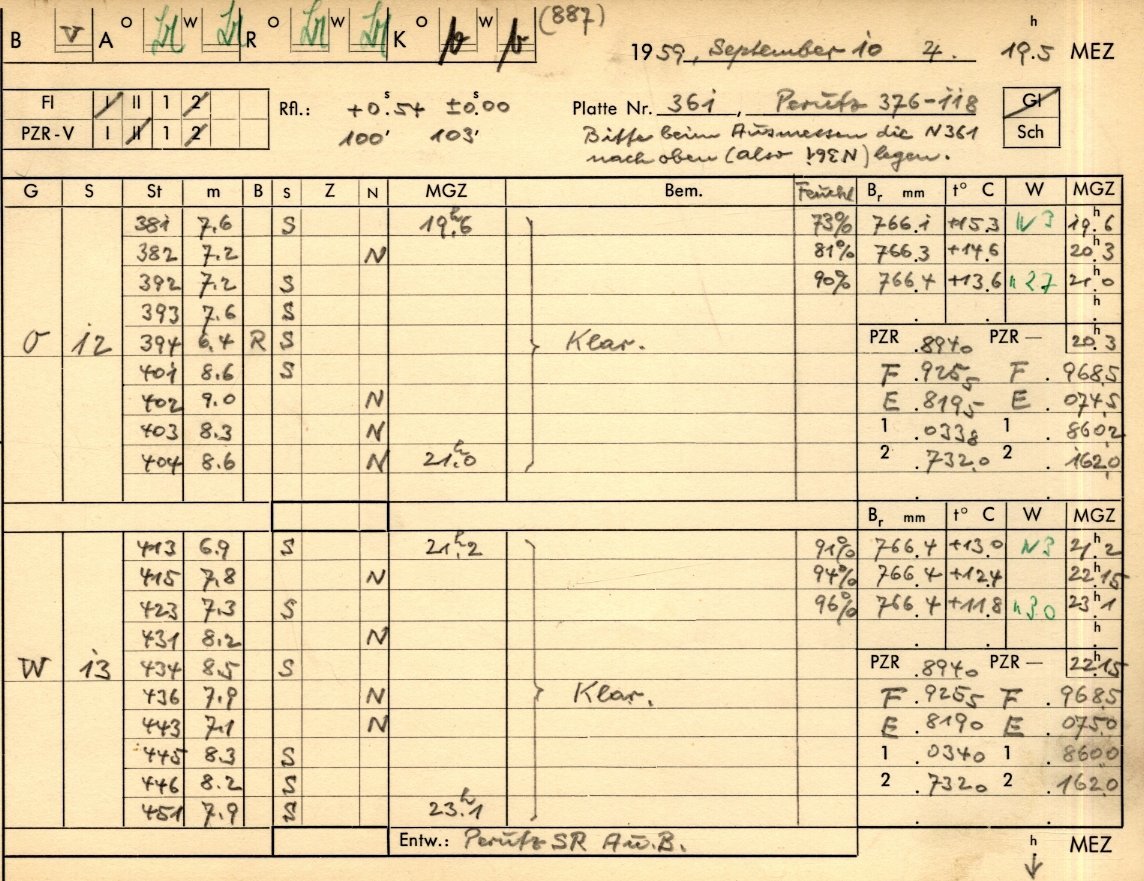 B v A O W R O W K O W (887)
1959, September 10 4. 19.5 h MEZ
Fl I II 1 2
PZR-V I II 1 2
Rfl.: +0.54 s ±0.00 s
100' 103'
Platte Nr. 361, Perutz 376-118
Bitte beim Ausmessen die N361
nach oben (also N361) legen.
Gl
Sch
G S St m B S Z N MGZ Bem. Feucht Br mm t° C W MGZ
381 7.6 S 19.6 h 73% 766.1 +15.3 N 3 19.6 h
382 7.2 N 81% 766.3 +14.6 20.3 h
392 7.2 S 90% 766.4 +13.6 n 27 21.0 h
393 7.6 S h
O 12 394 6.4 R S Klar. PZR .8940 PZR — 20.3 h
401 8.6 S F .9255 F .9685
402 9.0 N E .8195 E .0745
403 8.3 N 1 .0338 1 .8602
404 8.6 N 21.0 h 2 .7320 2 .1620
Br mm t° C W MGZ
413 6.9 S 21.2 h 91% 766.4 +13.0 N 3 21.2 h
415 7.8 N 94% 766.4 +12.4 22.15 h
423 7.3 S 96% 766.4 +11.8 n 30 23.1 h
431 8.2 N h
W 13 434 8.5 S PZR .8940 PZR — 22.15 h
436 7.9 N Klar. F .9255 F .9685
443 7.1 N E .8190 E .0750
445 8.3 S 1 .0340 1 .8600
446 8.2 S 2 .7320 2 .1620
451 7.9 S 23.1 h
Entw.: Perutz SR A u. B. h MEZ